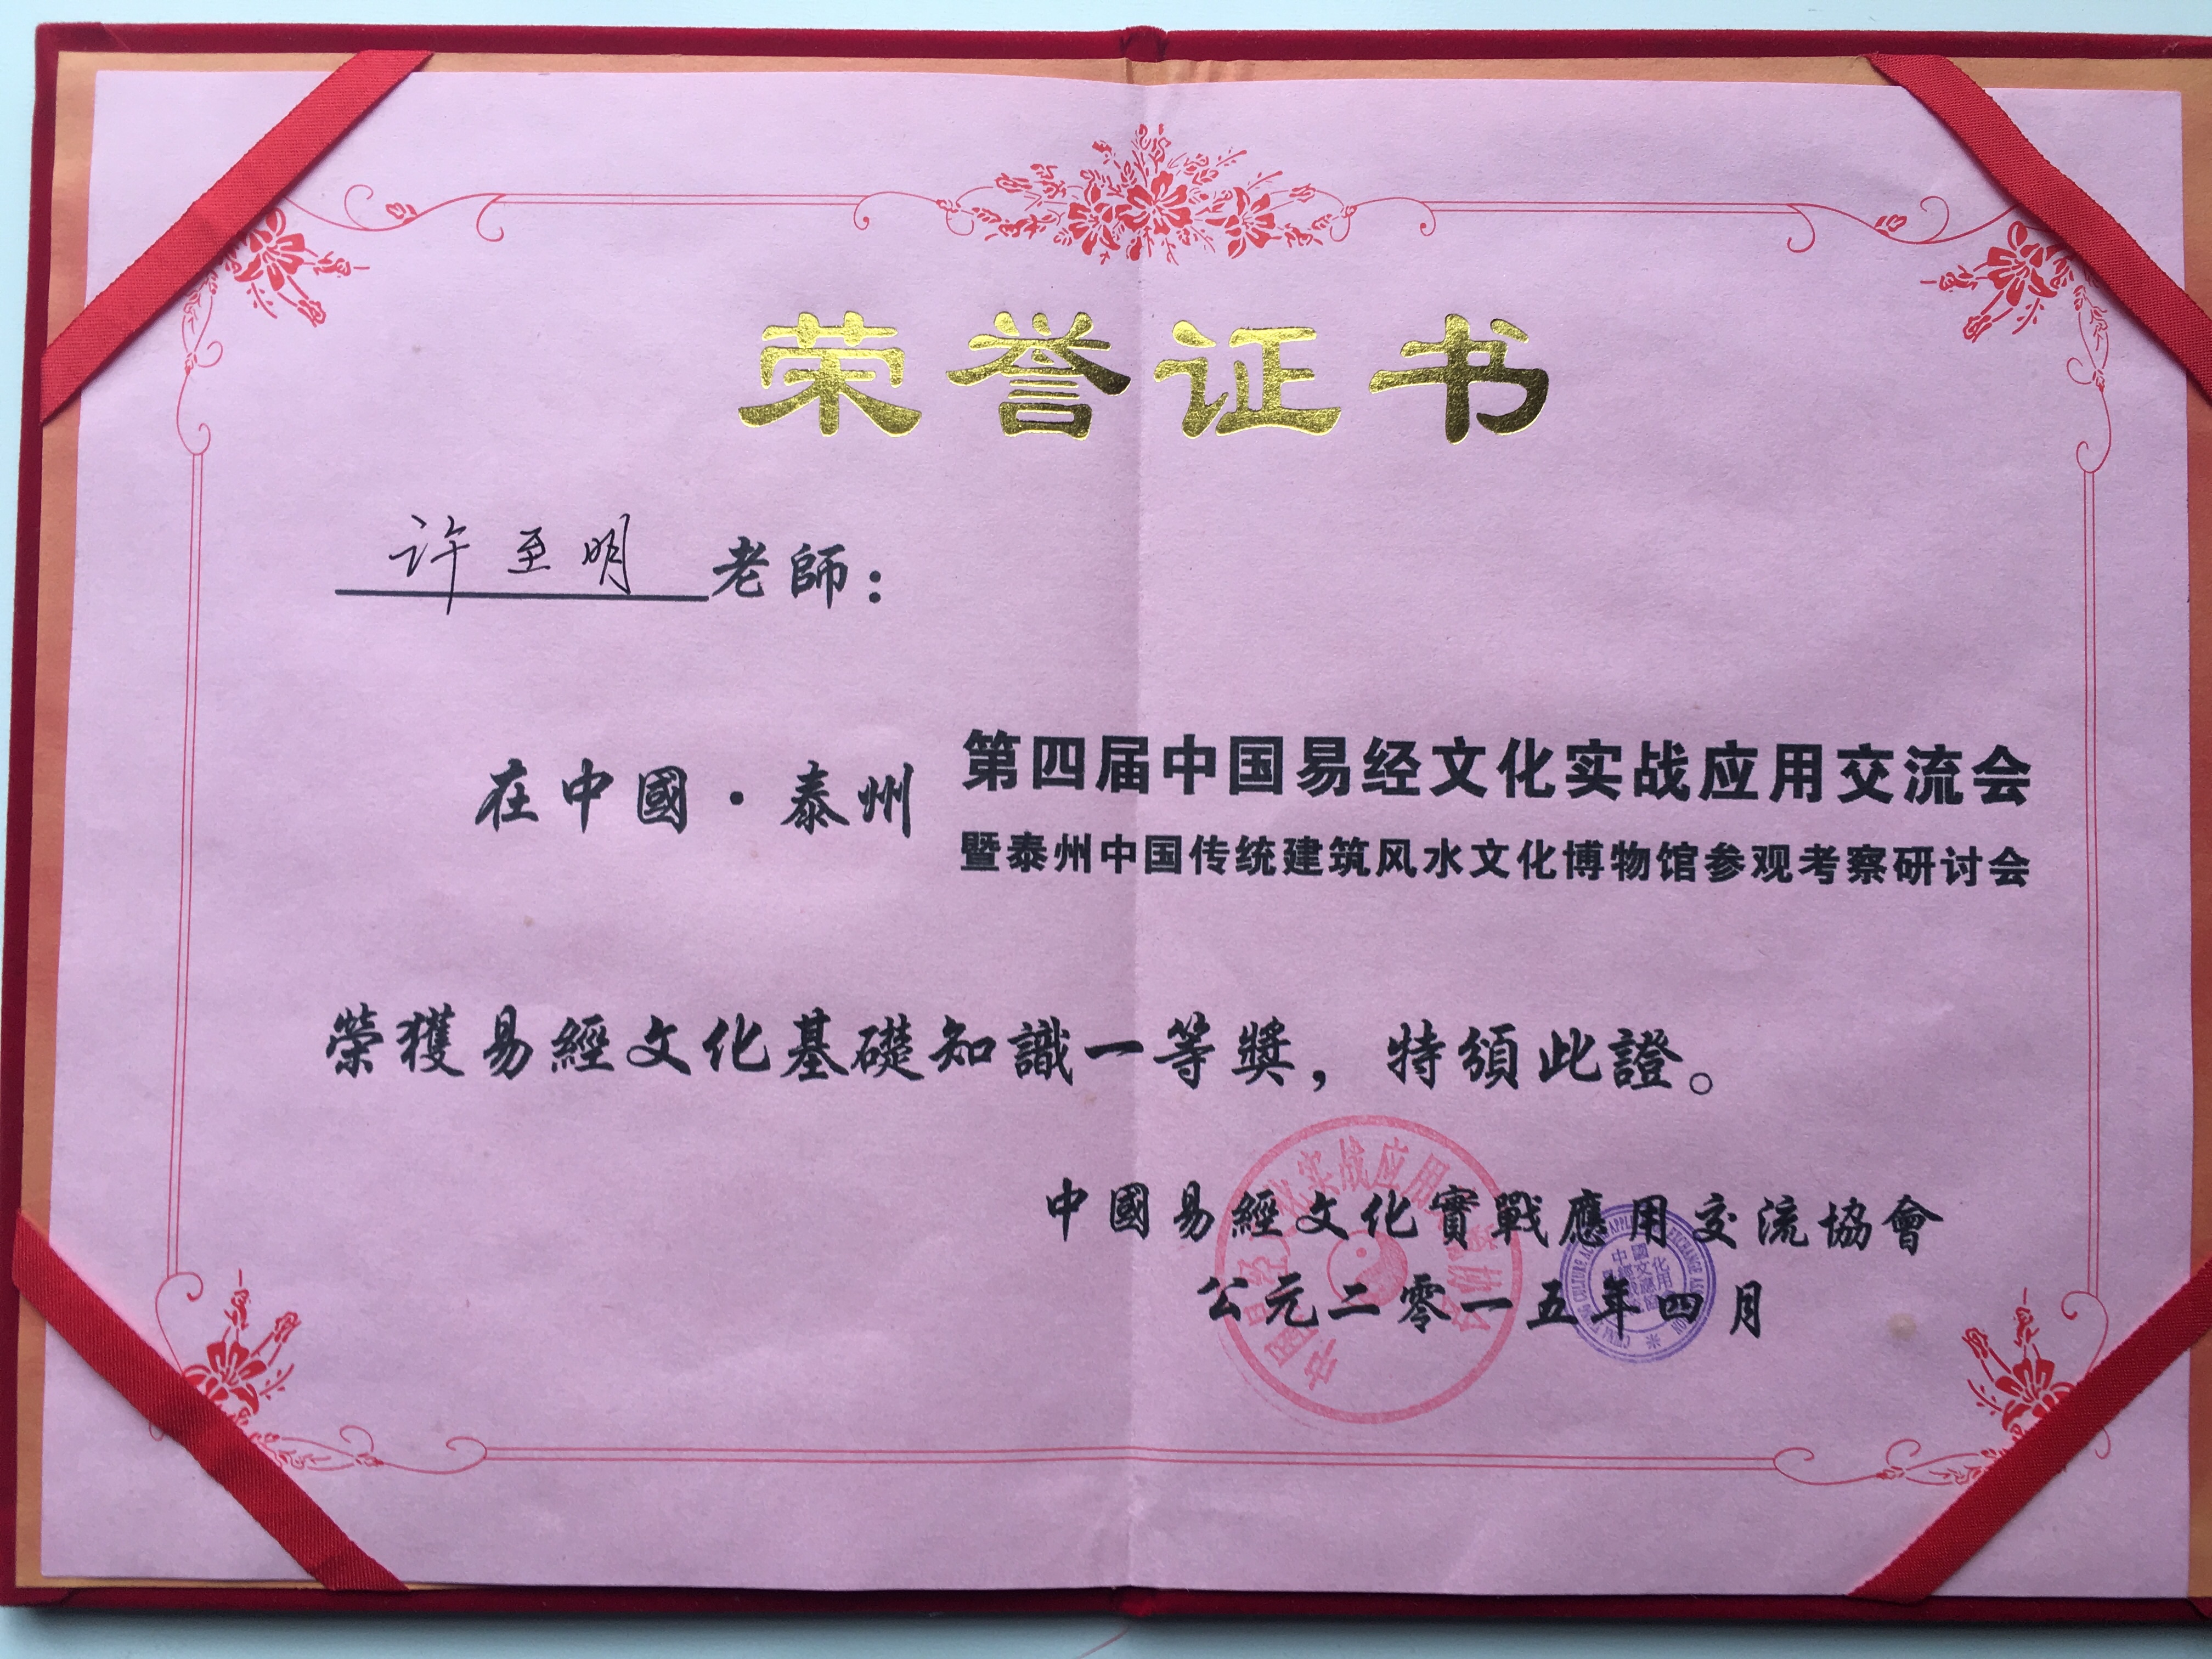 荣誉证书
许至明老師：
在中國·泰州
第四届中国易经文化实战应用交流会
暨泰州中国传统建筑风水文化博物馆参观考察研讨会
榮獲易經文化基礎知識一等獎，特頒此證。
中國易經文化實戰應用交流協會
公元二零一五年四月